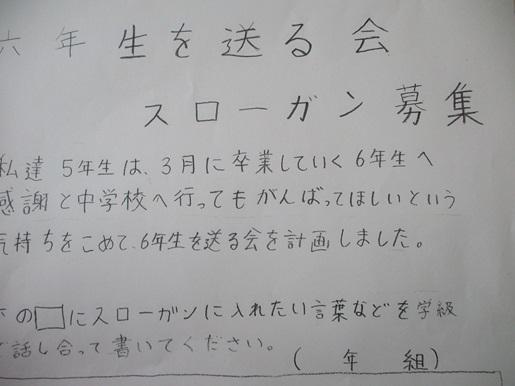 六年生を送る会
スローガン募集
私達5年生は、3月に卒業していく6年生へ
感謝と中学校へ行ってもがんばってほしいという
気持ちをこめて、6年生を送る会を計画しました。
下の□にスローガンに入れたい言葉などを学級
で話し合って書いてください。
(年組)